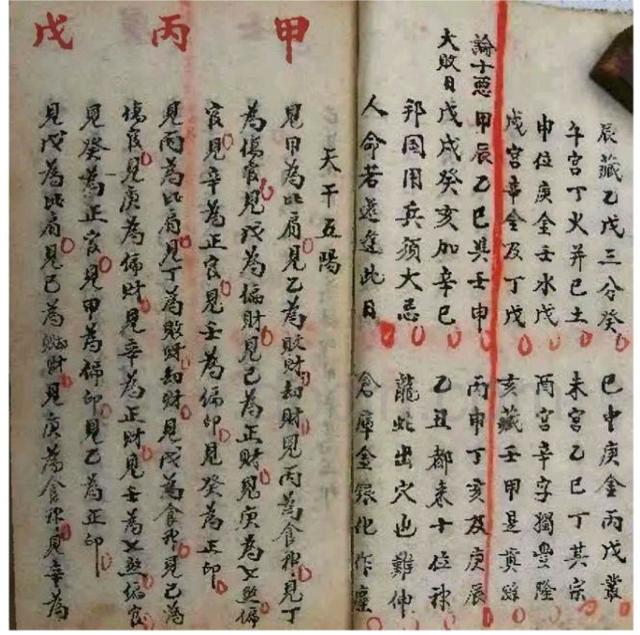 辰藏乙戊三分癸 巳中庚金丙戊叢
午宮丁火并己土 未宮乙己丁其宗
申位庚金壬水戊 酉宮辛字獨豐隆
戌宮辛金及丁戊 亥藏壬甲是真踪
論十惡 甲辰乙巳與壬申 丙申丁亥及庚辰
大敗日 戊戌癸亥加辛巳 乙丑都来十位神
邦国用兵須大忌 龍蛇出穴也難伸
人命若还逢此日 倉庫金銀化作塵
甲 丙 戊
天干五陽
見甲為比肩見乙為敗財刼財見丙為食神見丁
為傷官見戊為偏財見己為正財見庚為七煞偏
官見辛為正官見壬為偏印見癸為正印
見丙為比肩見丁為敗財刼財見戊為食神見己為
傷官見庚為偏財見辛為正財見壬為七煞偏官
見癸為正官見甲為偏印見乙為正印
見戊為比肩見己為財見庚為食神見辛為